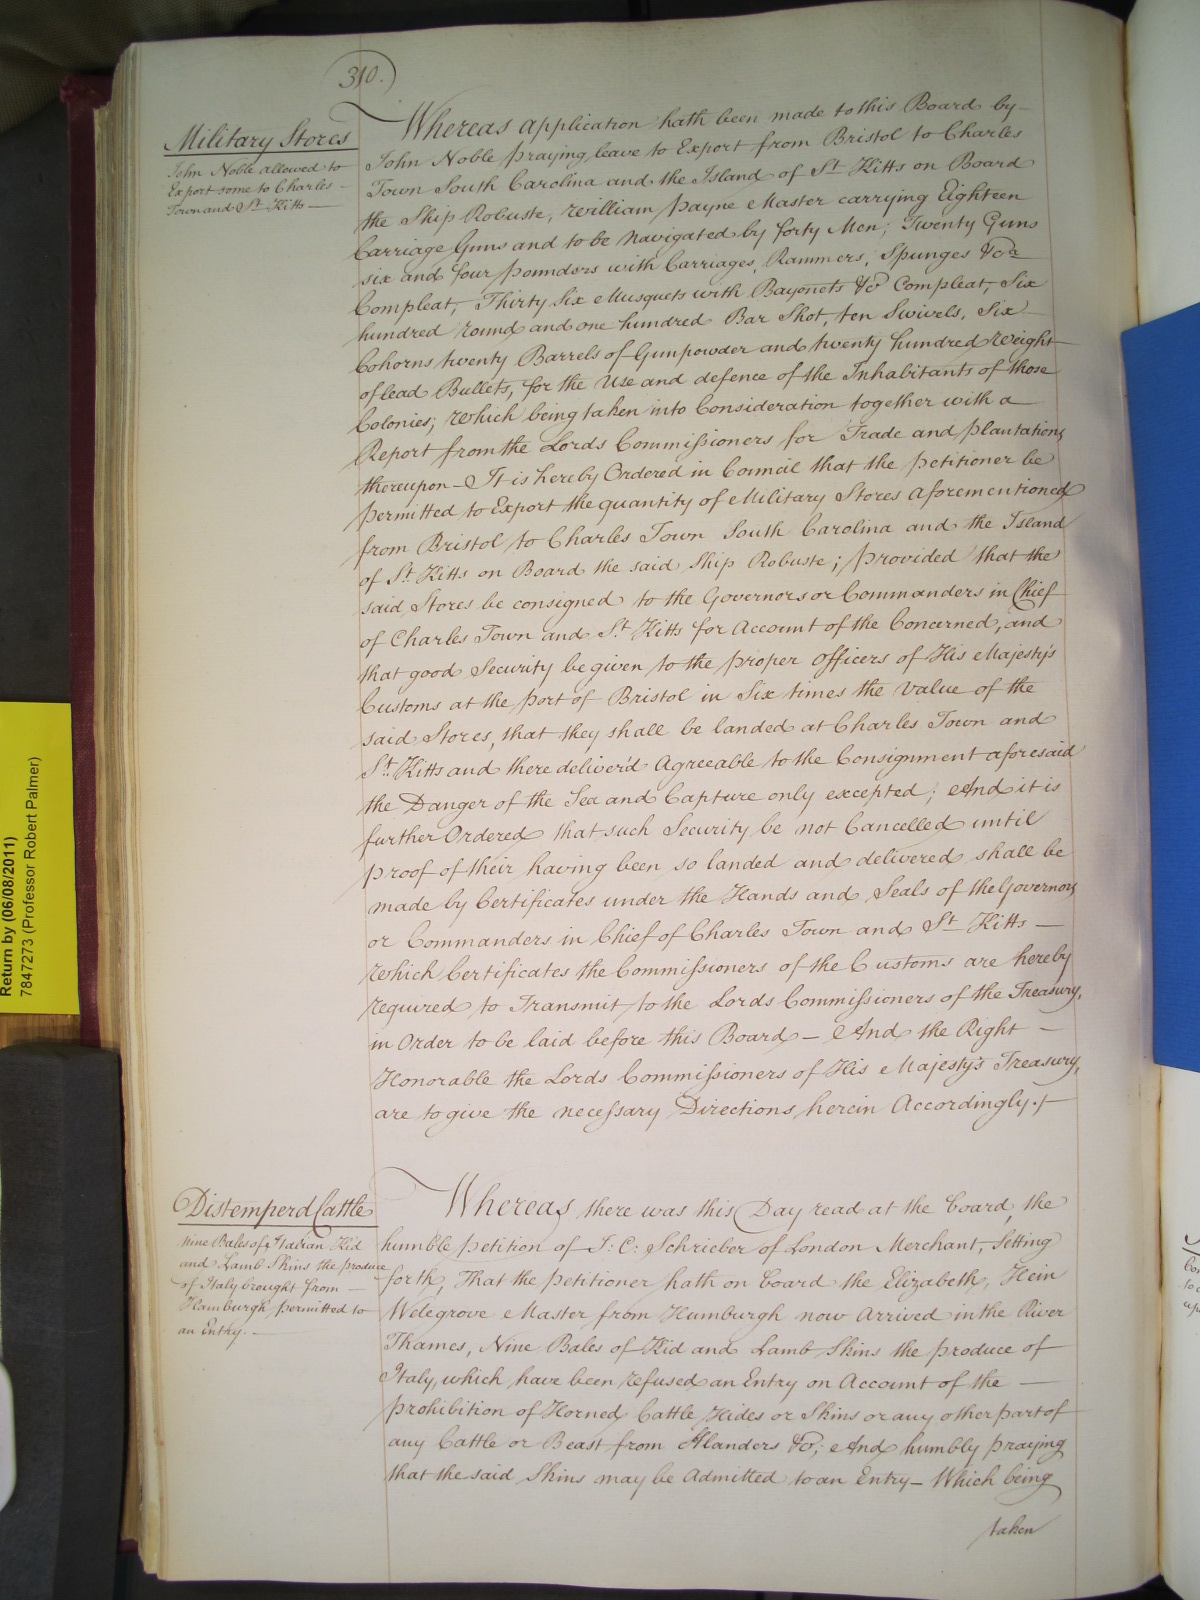 310.
Military Stores
John Noble allowed to
Export some to Charles
Town and St. Kitts
Whereas application hath been made to this Board by
John Noble praying leave to Export from Bristol to Charles
Town South Carolina and the Island of St. Kitts on Board
the Ship Robuste, William Payne Master carrying Eighteen
Carriage Guns and to be Navigated by forty Men; Twenty Guns
six and four pounders with Carriages, Rammers, Spunges &ca.
Compleat, Thirty Six Musquets with Bayonets &c Compleat, Six
hundred round and one hundred Bar Shot, ten Swivels, Six
Cohorns twenty Barrels of Gunpowder and twenty hundred Weight
of lead Bullets, for the Use and defence of the Inhabitants of those
Colonies; Which being taken into Consideration together with a
Report from the Lords Commissioners for Trade and Plantations
thereupon - It is hereby Ordered in Council that the Petitioner be
permitted to Export the quantity of Military Stores aforementioned
from Bristol to Charles Town South Carolina and the Island
of St. Kitts on Board the said Ship Robuste; provided that the
said Stores be consigned to the Governors or Commanders in Chief
of Charles Town and St. Kitts for Account of the Concerned, and
that good Security be given to the proper Officers of His Majesty's
Customs at the port of Bristol in Six times the Value of the
said Stores, that they shall be landed at Charles Town and
St. Kitts and there deliver'd Agreeable to the Consignment aforesaid
the Danger of the Sea and Capture only excepted; And it is
further Ordered that such Security be not Cancelled until
proof of their having been so landed and delivered shall be
made by Certificates under the Hands and Seals of the Governors
or Commanders in Chief of Charles Town and St. Kitts -
Which Certificates the Commissioners of the Customs are hereby
required to Transmit to the Lords Commissioners of the Treasury,
in Order to be laid before this Board - And the Right -
Honorable the Lords Commissioners of His Majesty's Treasury,
are to give the necessary Directions herein Accordingly.
Distemperd Cattle
Nine Bales of Italian Kid
and Lamb Skins the produce
of Italy brought from
Hamburgh permitted to
an Entry.
Whereas there was this Day read at the Board, the
humble petition of J: C: Schrieber of London Merchant, Setting
forth, That the Petitioner hath on board the Elizabeth, Hein
Welegrove Master from Hamburgh now Arrived in the River
Thames, Nine Bales of Kid and Lamb Skins the produce of
Italy, which have been refused an Entry on Account of the
prohibition of Horned Cattle Hides or Skins or any other part of
any Cattle or Beast from Flanders &c; And humbly praying
that the said Skins may be Admitted to an Entry - Which being
taken
Return by (06/08/2011)
7847273 (Professor Robert Palmer)